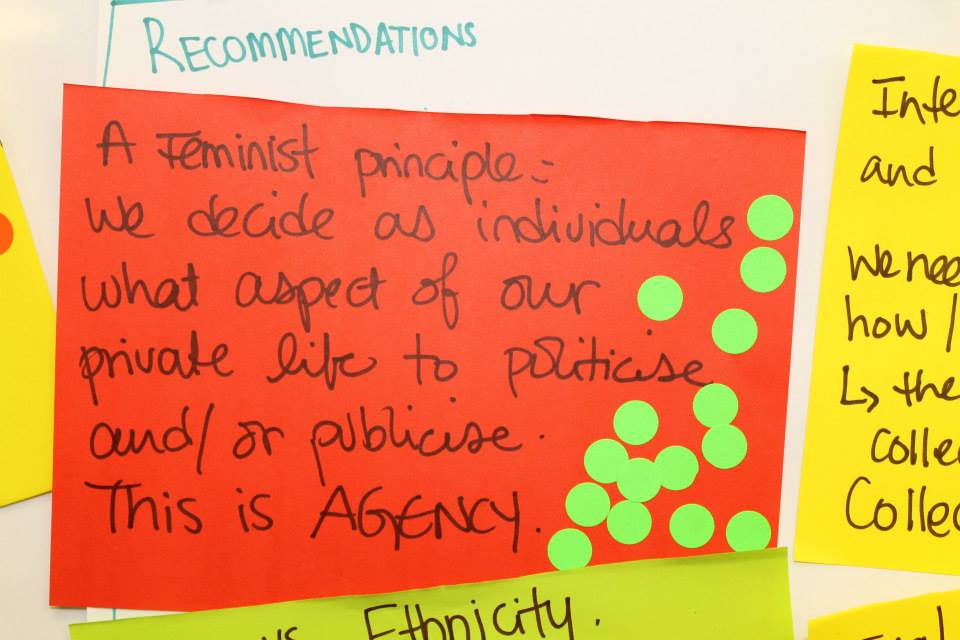 RECOMMENDATIONS
A Feminist principle:
We decide as individuals
what aspect of our
private life to politicise
and/or publicise.
This is AGENCY.
Ethnicity.
and
We need
how /
↳ the